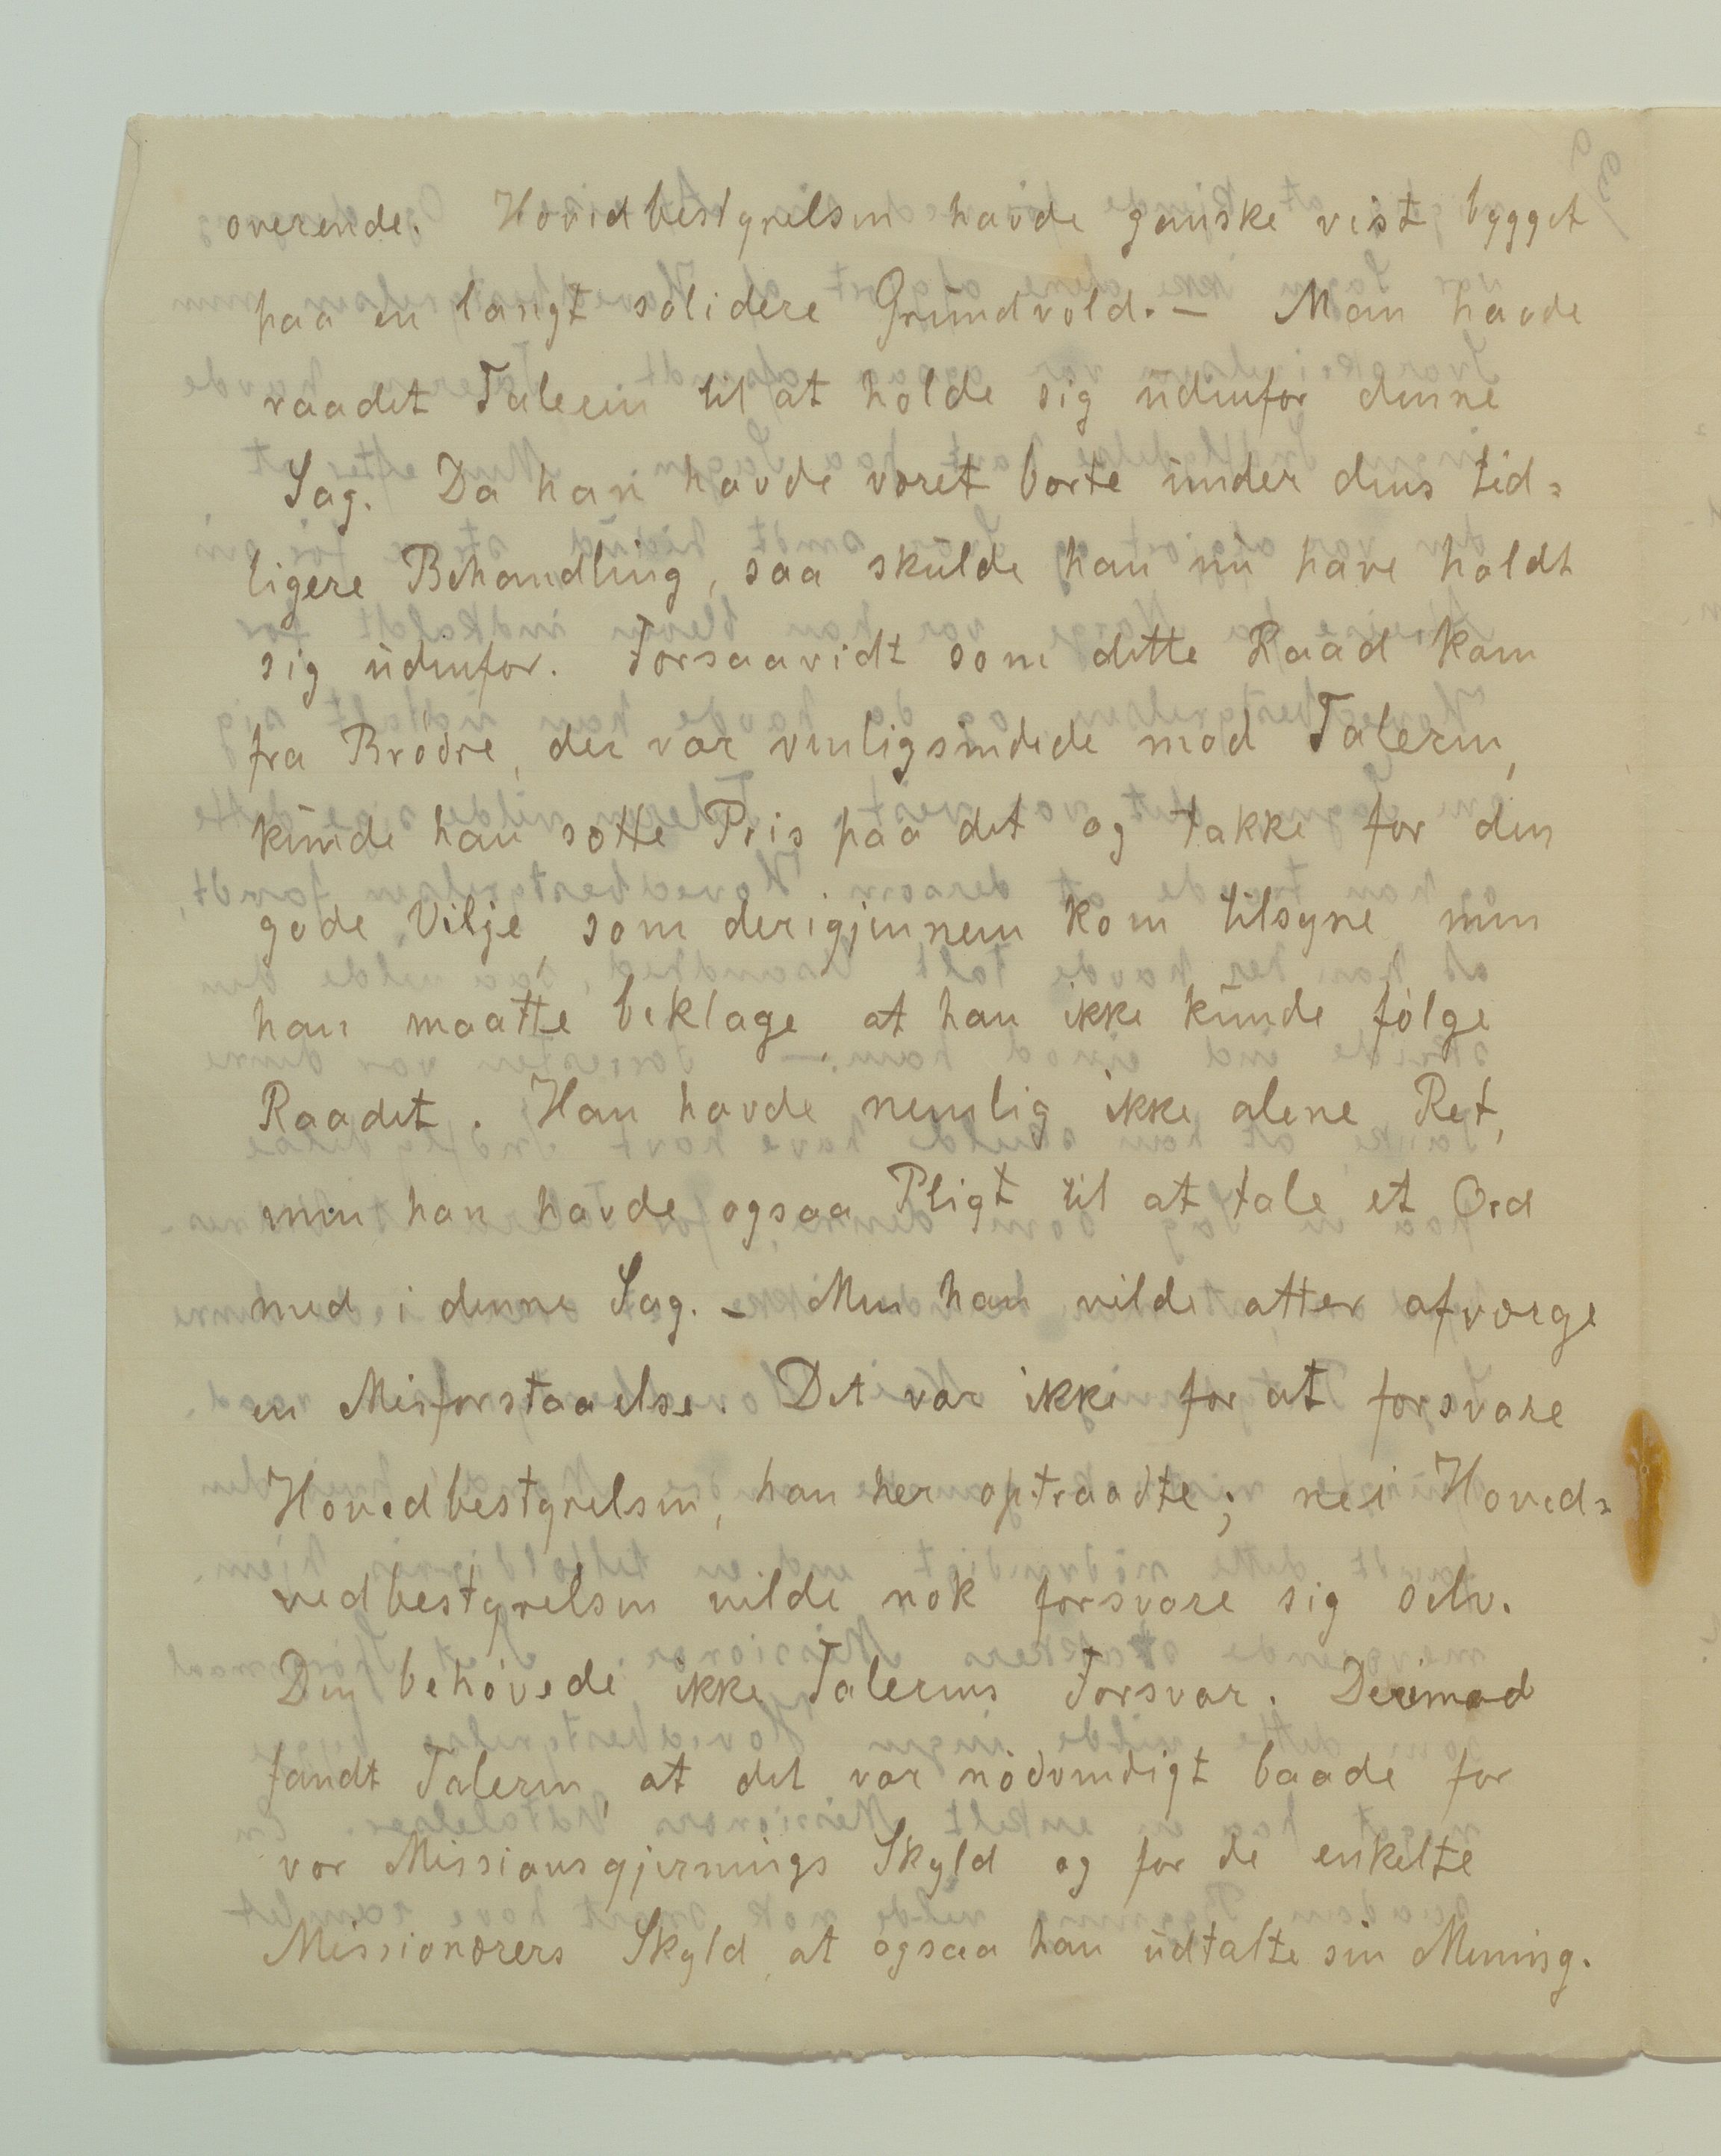 overende. Hovedbestyrelsen havde ganske vist bygget
paa en langt solidere Grundvold. — Man havde
raadet Taleren til at holde sig udenfor denne
Sag. Da han havde været borte under dens tid=
ligere Behandling, saa skulde han nu have holdt
sig udenfor. Forsaavidt som dette Raad kom
fra Brödre, der var venligsindede mod Taleren,
kunde han sætte Pris paa det og takke for den
gode Vilje, som derigjennem kom tilsyne men
han maatte beklage at han ikke kunde fölge
Raadet. Han havde nemlig ikke alene Ret,
men han havde ogsaa Pligt til at tale et Ord
med i denne Sag. — Men han vilde atter afværge
en Misforstaaelse. Det var ikke for at forsvare
Hovedbestyrelsen, han her optraadte; nei Hoved=
vedbestyrelsen vilde nok forsvare sig selv.
Den behövede ikke Talerens Forsvar. Derimod
fandt Taleren, at det var nödvendigt baade for
vor Missionsgjernings Skyld og for de enkelte
Missionærers Skyld, at ogsaa han udtalte sin Mening.